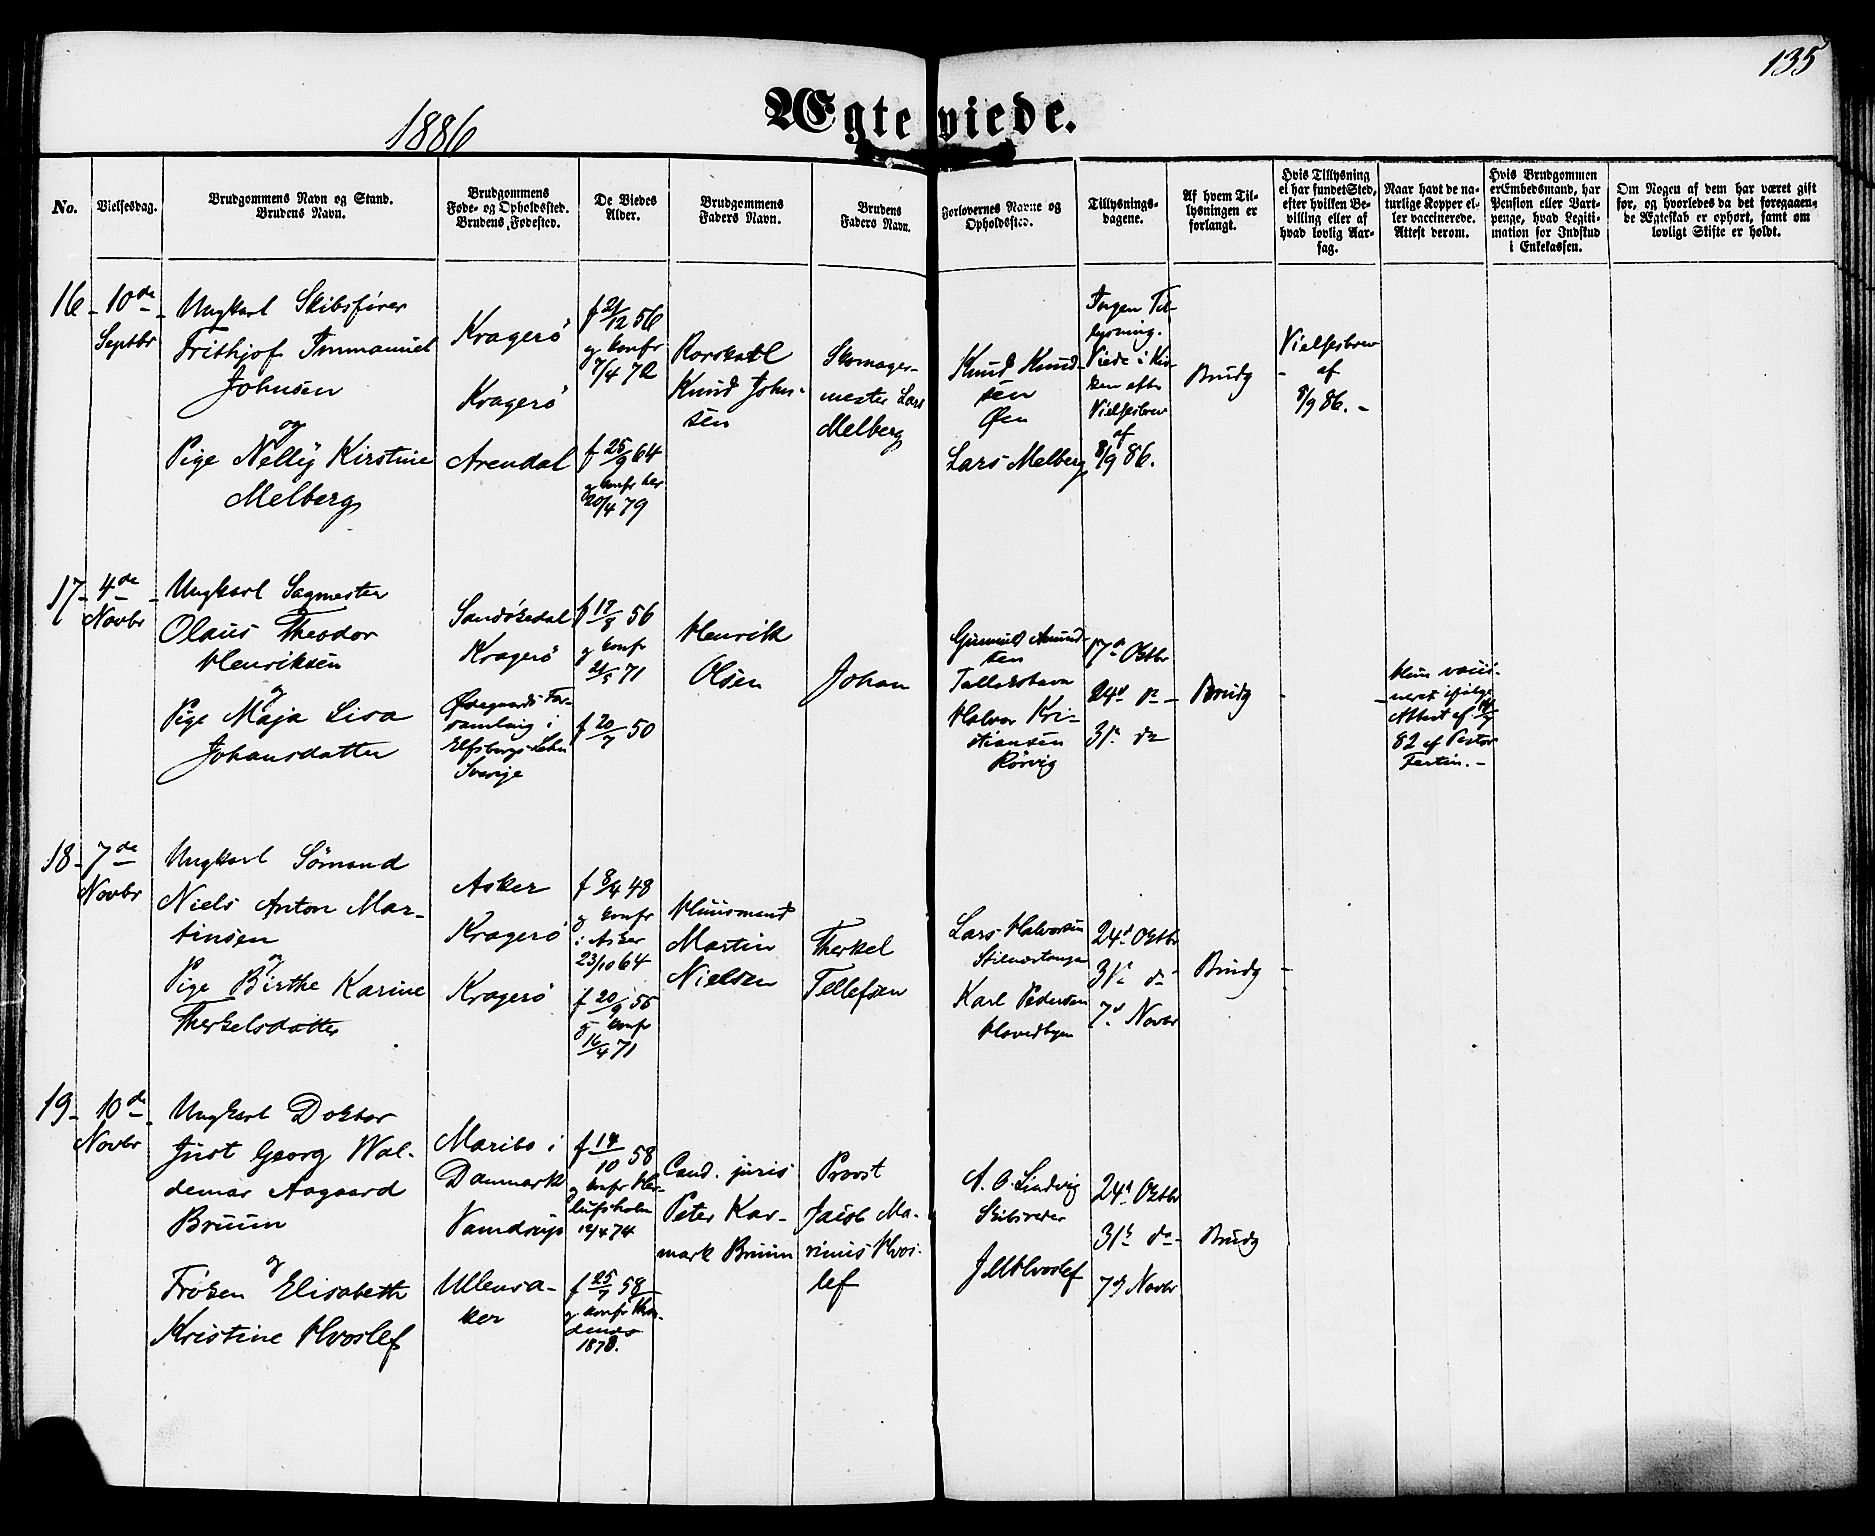 135
1886
Ægteviede.
No.
Vielsesdag.
Brudgommens Navn og Stand.
Brudens Navn.
Brudgommens
Føde- og Opholdssted.
Brudens Fødested.
De Viedes
Alder.
Brudgommens
Faders Navn.
Brudens
Faders Navn.
Forlovernes Navne og
Opholdssted.
Tillysnings-
dagene.
Af hvem Til-
lysningen er
forlangt.
Hvis Tillysning
ei har fundet Sted,
efter hvilken Be-
villing eller af
hvad lovlig Aar-
sag.
Naar havt de na-
turlige Kopper el-
ler vaccinerede.
Attest derom.
Hvis Brudgommen
er Embedsmand, har
Pension eller Vart-
penge, hvad Legiti-
mation for Indskud
i Enkekassen.
Om Nogen af dem har været gift
før, og hvorledes da det foregaaen-
de Ægteskab er ophørt, samt om
lovligt Skifte er holdt.
16 - 10de -
Septbr
Ungkarl Skibsfører
Frithjof Immanuel
Johnsen
og
Pige Nelly Kirstine
Melberg
Kragerø
Kragerø
Arendal
f 21/12 56
og konfr
7/4 72
f 25/9 64
og konfr her
20/4 79
Knud John-
sen
Skomager-
mester Lars
Melberg
Knud Knud-
sen
Øen
Lars Melberg
Ingen Til-
lysning.
Viede i Kir-
ken efter
Vielsesbrev
af
8/9 86.
Brudg -
Vielsesbrev
af
8/9 86. -
17 - 4de -
Novbr
Ungkarl Sagmester
Olaus Theodor
Henriksen
og
Pige Maja Lisa
Johansdatter
Sandøkedal
Kragerø
samling i
Elfsborgs Lehn
Sverige
f 17/8 56
og konfr
21/5 71
f 20/7 50
Henrik
Olsen
Johan
Gunnuld Amund-
sen
Tallakshavn
Halvor Kri-
stiansen
Rørvig
17d Oktbr
24d do -
31d do
Brudg -
- Hun vacci-
neret ifølge
Attest af
82 af Pastor
18 - 7de
Novbr
Ungkarl Sømand
Niels Anton Mar-
tinsen
og
Pige Birthe Karine
Therkelsdatter
Asker
Kragerø
Kragerø
f 8/4 48
og konfr
i Asker
23/10 64
f 20/9 55
og konfr
16/4 71
Huusmand
Martin
Nielsen
Therkel
Tellefsen
Lars Halvorsen
Stilnæstangen
Karl Pedersen
Hovedbyen
24d Oktbr
31d do
7d Novbr
Brudg -
19 - 10de -
Novbr
Ungkarl Doktor
Just Georg Wal-
demar Aagaard
Bruun
og
Frøken Elisabeth
Kristine Hvoslef
Maribo i
Danmark
Vamdrup
Ullensa-
ker
f 14/10 58
og konfr Her-
lufsholm
12/4 74
f 25/7 58
og konfr
1873.
Cand. juris
Peter Kar-
mark Bruun
Provst
Jacob Ma-
rinus Hvos-
lef
A. O. Lindvig
Skibsreder
J M Hvoslef
24d Oktbr
31d do -
7d Novbr
Brudg